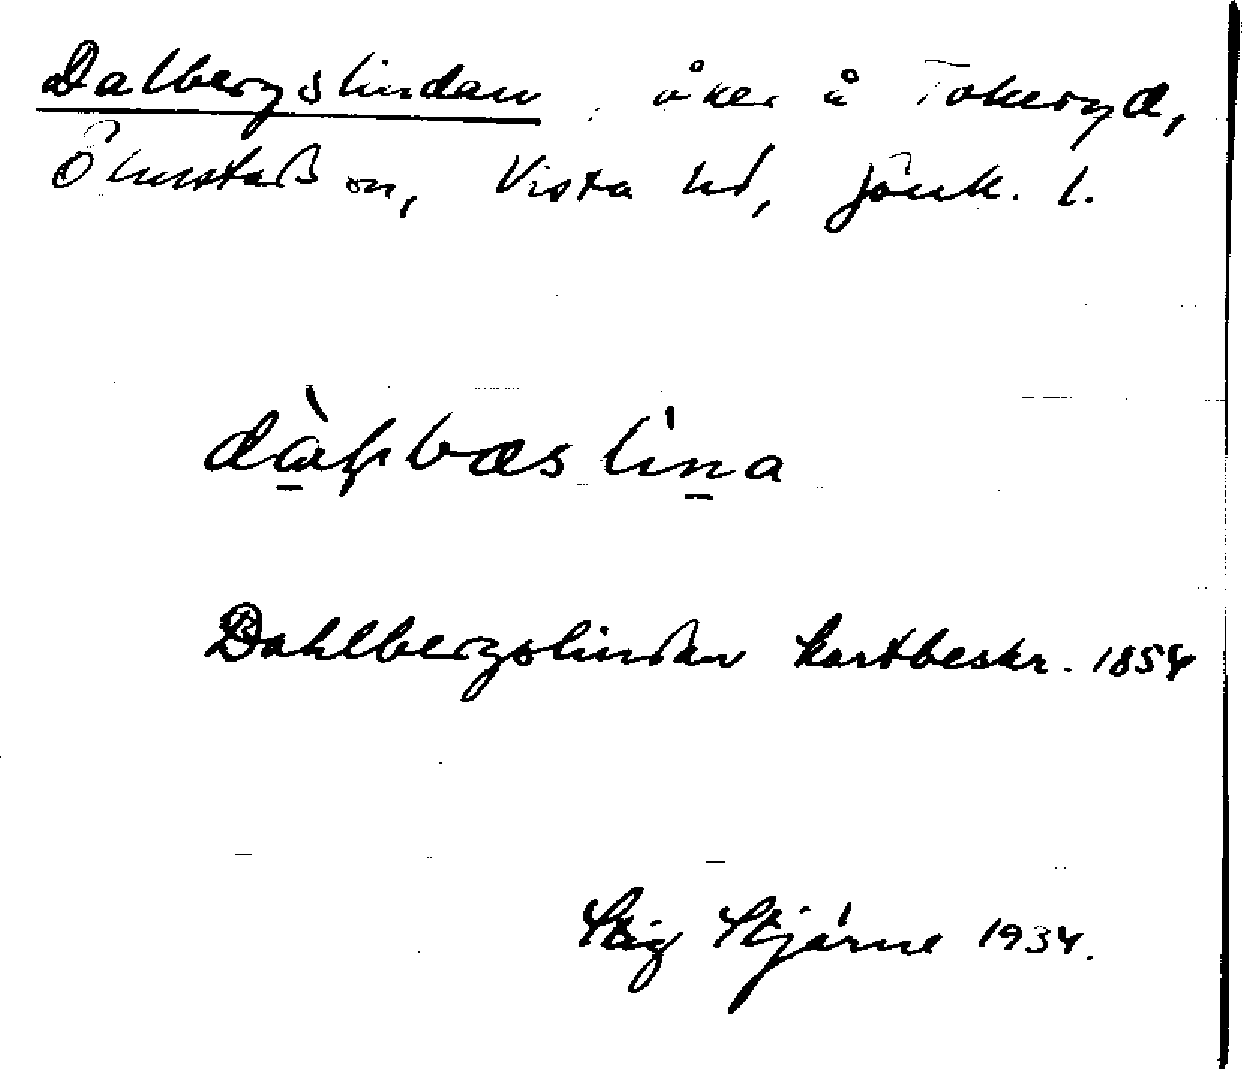 Dalbergslindan, åker å Tokeryd,
Ölmstad sn, Vista hd, Jönk. l.
Dahlbergslindan Kartbeskr. 1854
Stig Stjärne 1934.